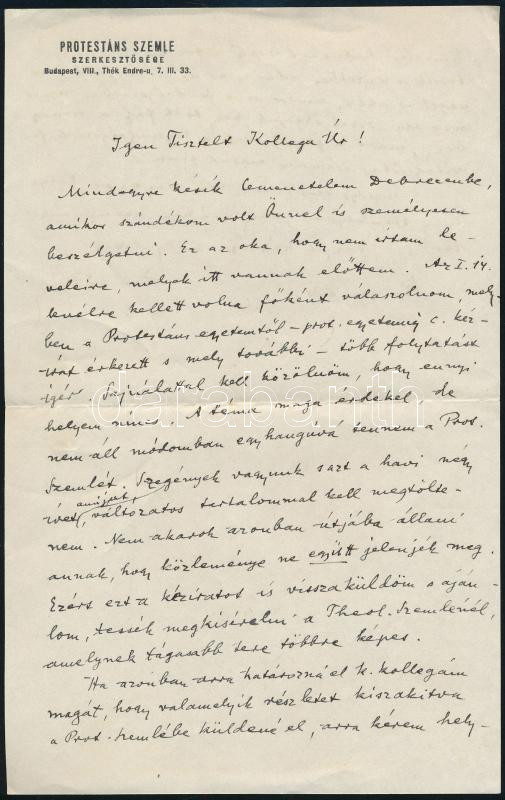 PROTESTÁNS SZEMLE
SZERKESZTŐSÉGE
Budapest, VIII., Thék Endre-u. 7. III. 33.
Igen Tisztelt Kollega Úr!
Mindegyre késik lemenetelem Debrecenbe,
amikor szándékom volt Önnel is személyesen
beszélgetni. Ez az oka, hogy nem írtam le-
veleire, melyek itt vannak előttem. Az I. 14.
levélre kellett volna főként válaszolnom, mely-
ben a Protestáns egyetemtől – prot. egyetemig c. kéz-
irat érkezett s mely további – több folytatást
ígér. Sajnálattal kell közölnöm, hogy ennyi
helyem nincs. A téma maga érdekel, de
nem áll módomban egyhangúvá tennem a Prot.
Szemlét. Szegények vagyunk s azt a havi négy
ívet, változatos tartalommal kell megtölte-
amijut,
nem. Nem akarok azonban útjába állani
annak, hogy közleménye ne együtt jelenjék meg.
Ezért ezt a kéziratot is visszaküldöm s aján-
lom, tessék megkísérelni a Theol. Szemlénél,
amelynek tágasabb tere többre képes.
Ha azonban arra határozná el k. kollegám
magát, hogy valamelyik részletet kiszakítva
a Prot. Szemlébe küldené el, arra kérem hely-
darabanth